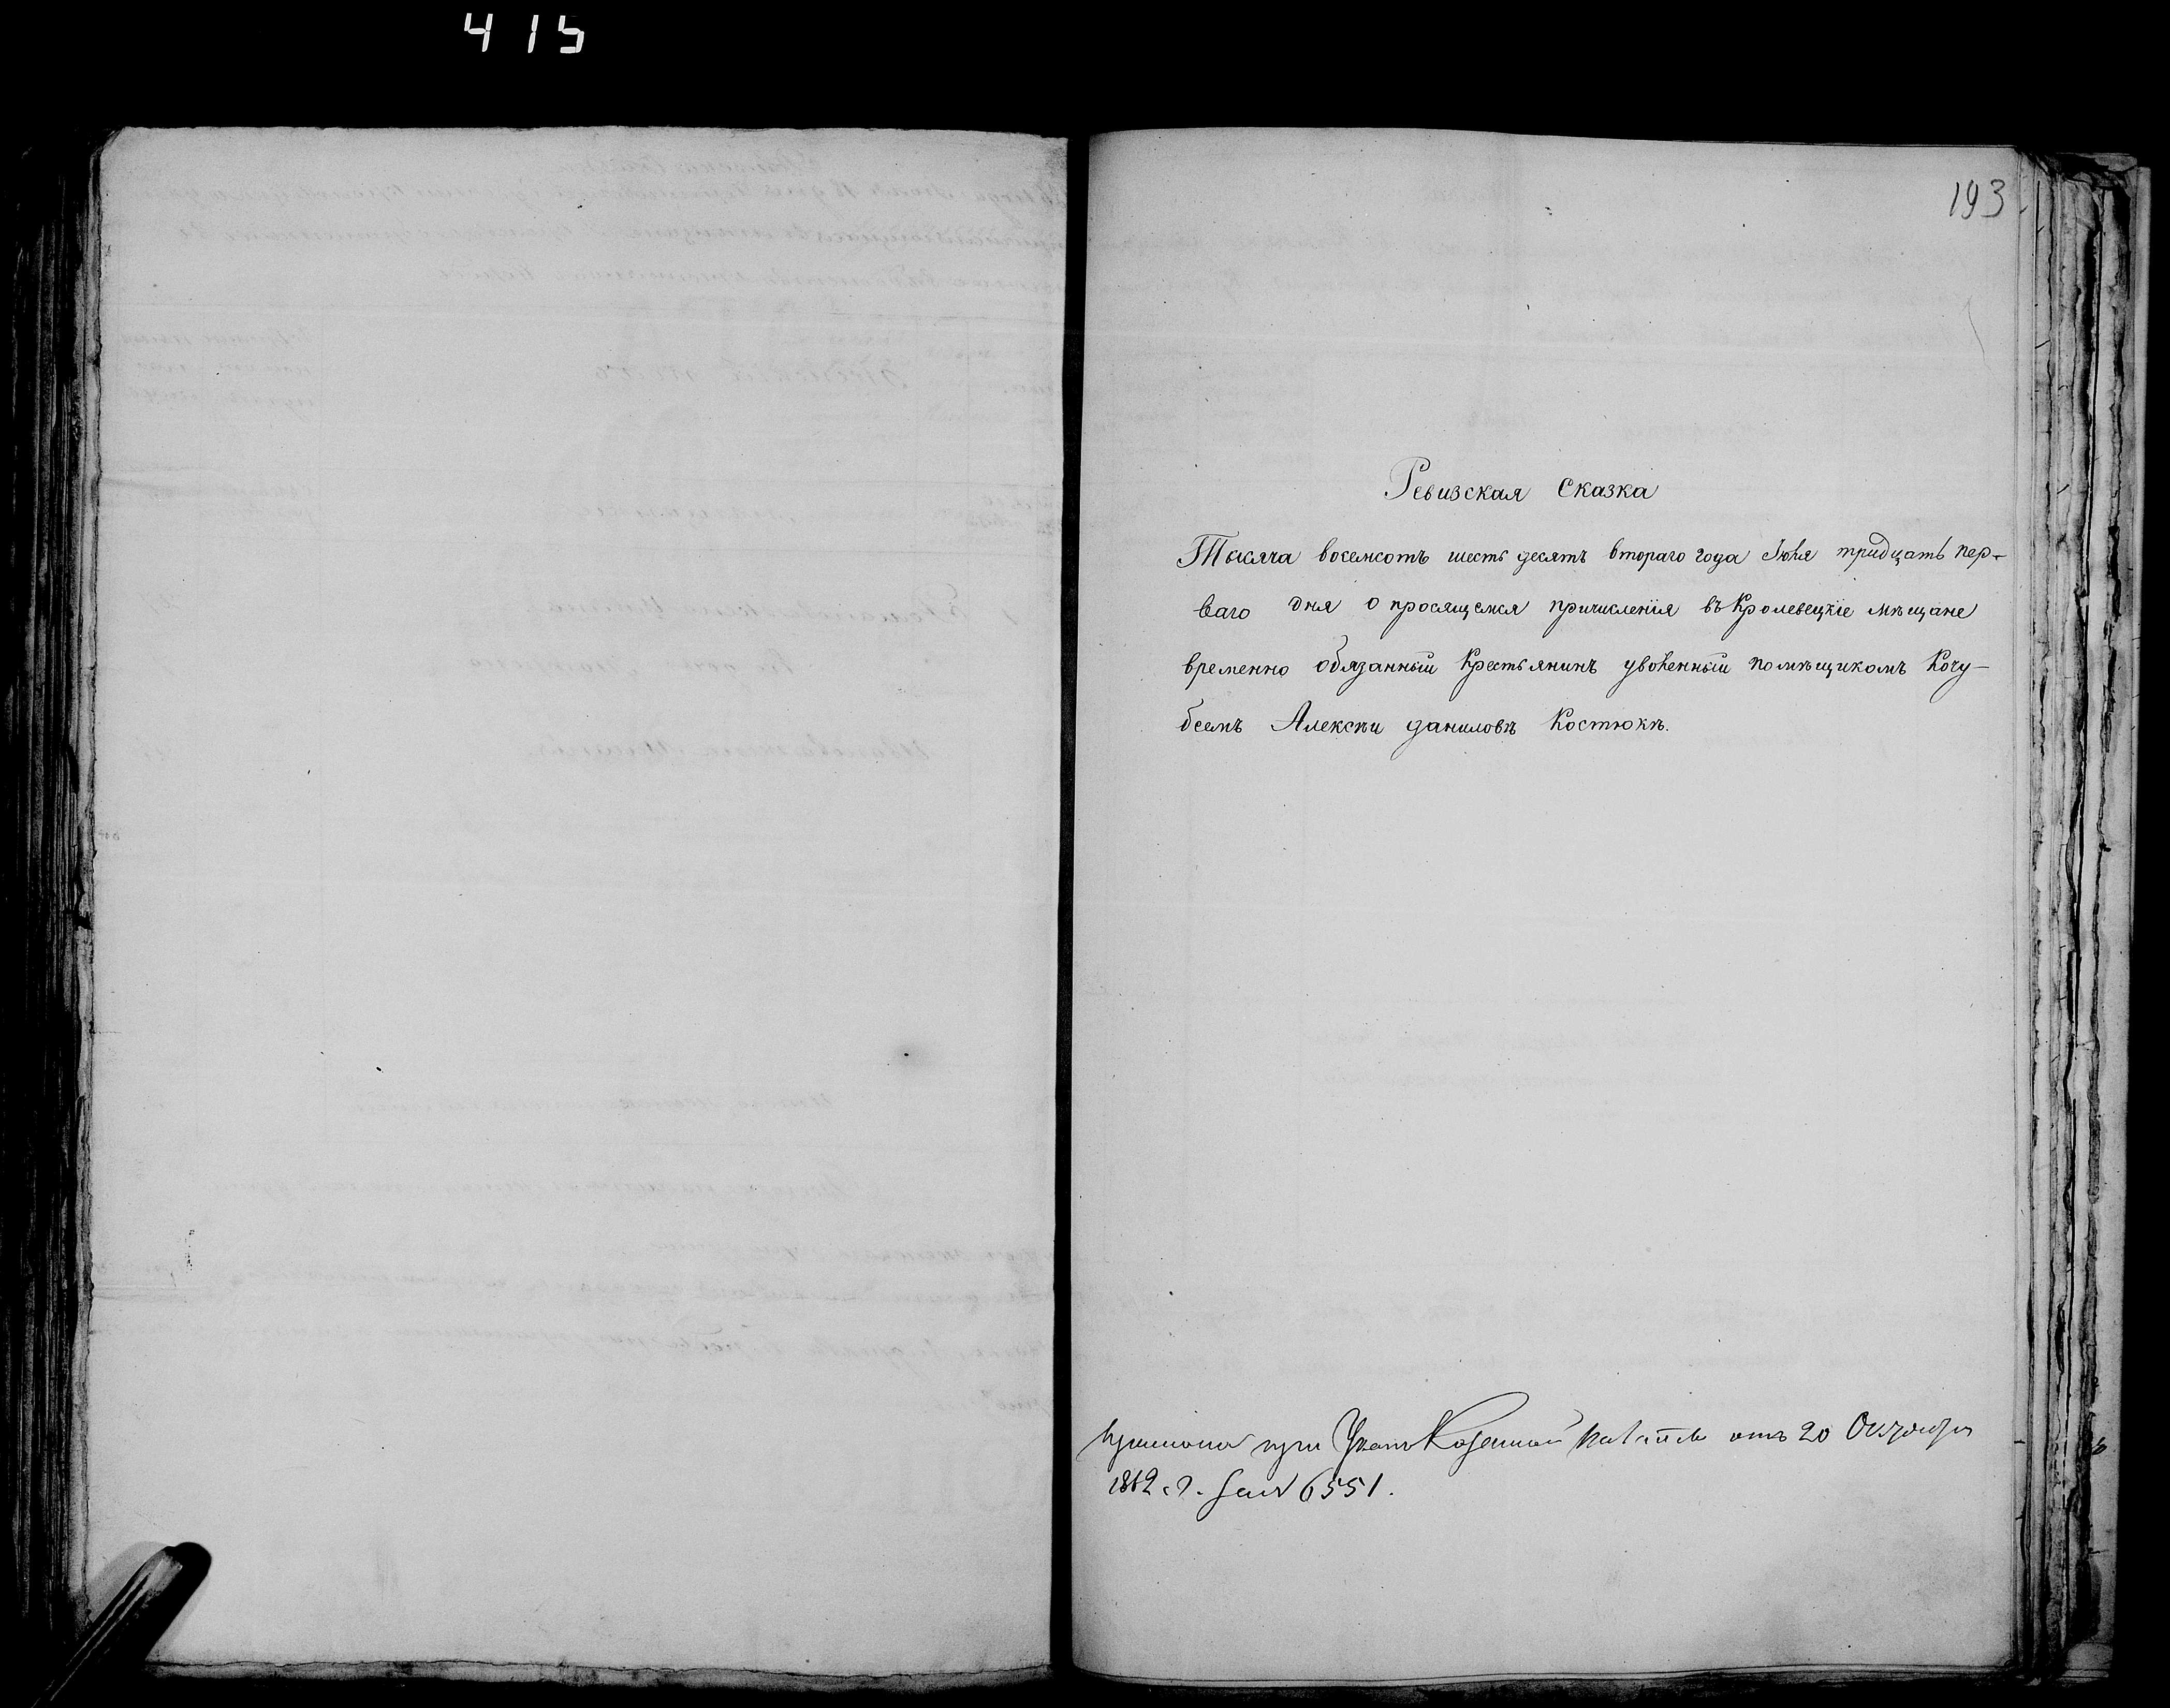 415
193
Ревизская Сказка
Тысяча восемсотъ шесть десятъ втораго года Июля тридцать пер-
ваго дня о просящемся причисленія въ Кролевецкіе мѣщане
временно обязанный Крестьянинъ уволенный помѣщикомъ Кочу-
беемъ Алексѣи даниловѣ Костюкѣ.
при Казенной Палаты отъ 20 Октября
1862 г. за № 6551.